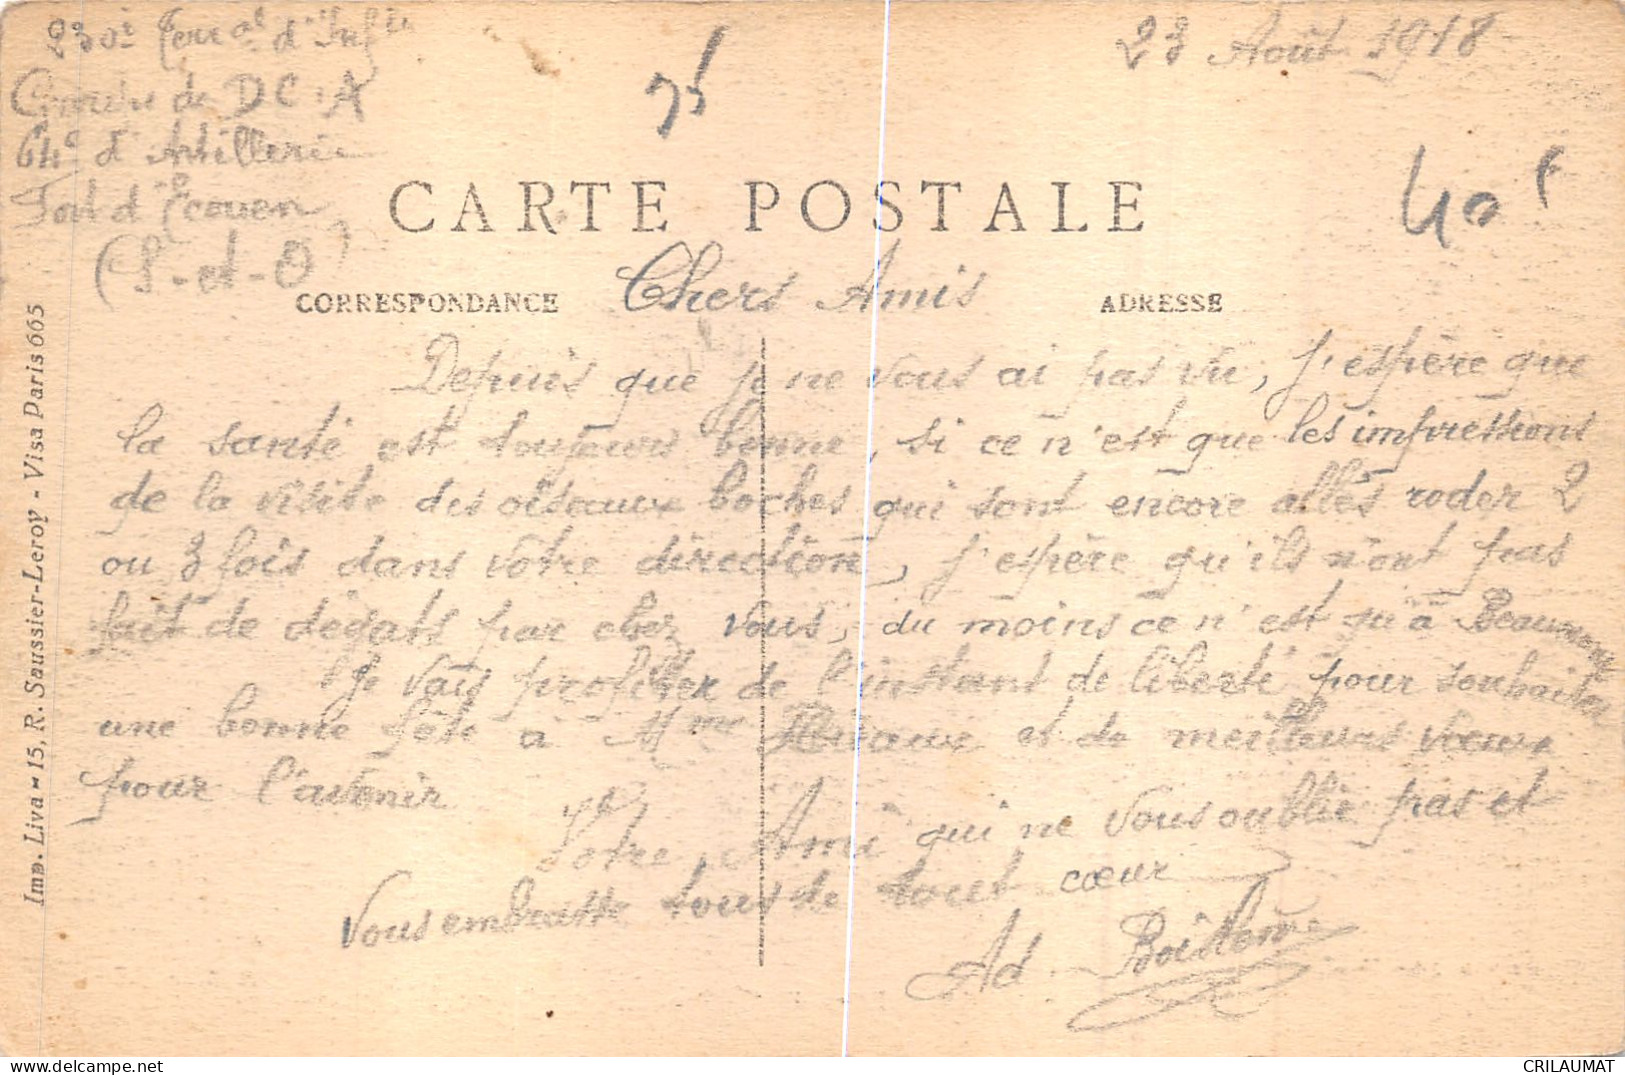 230e Terral d'Infie
de DCA
64e d'Artillerie
Fort d'Écouen
(S-et-O)
23 Août 1918
75
40F
CARTE POSTALE
CORRESPONDANCE
ADRESSE
Chers Amis
Depuis que je ne vous ai pas vu, j'espère que
la santé est toujours bonne, si ce n'est que les impressions
de la visite des oiseaux boches qui sont encore allés roder 2
ou 3 fois dans votre direction, j'espère qu'ils n'ont pas
fait de dégats par chez vous, du moins ce n'est qu'à Beaumont
Je vais profiter de l'instant de liberté pour souhaiter
une bonne fête à Mme et de meilleurs vœux
pour l'avenir
Votre Ami qui ne vous oublie pas et
Vous embrasse tous de tout cœur
Ad
Imp. Liva - 15, R. Saussier-Leroy - Visa Paris 665
CRILAUMAT